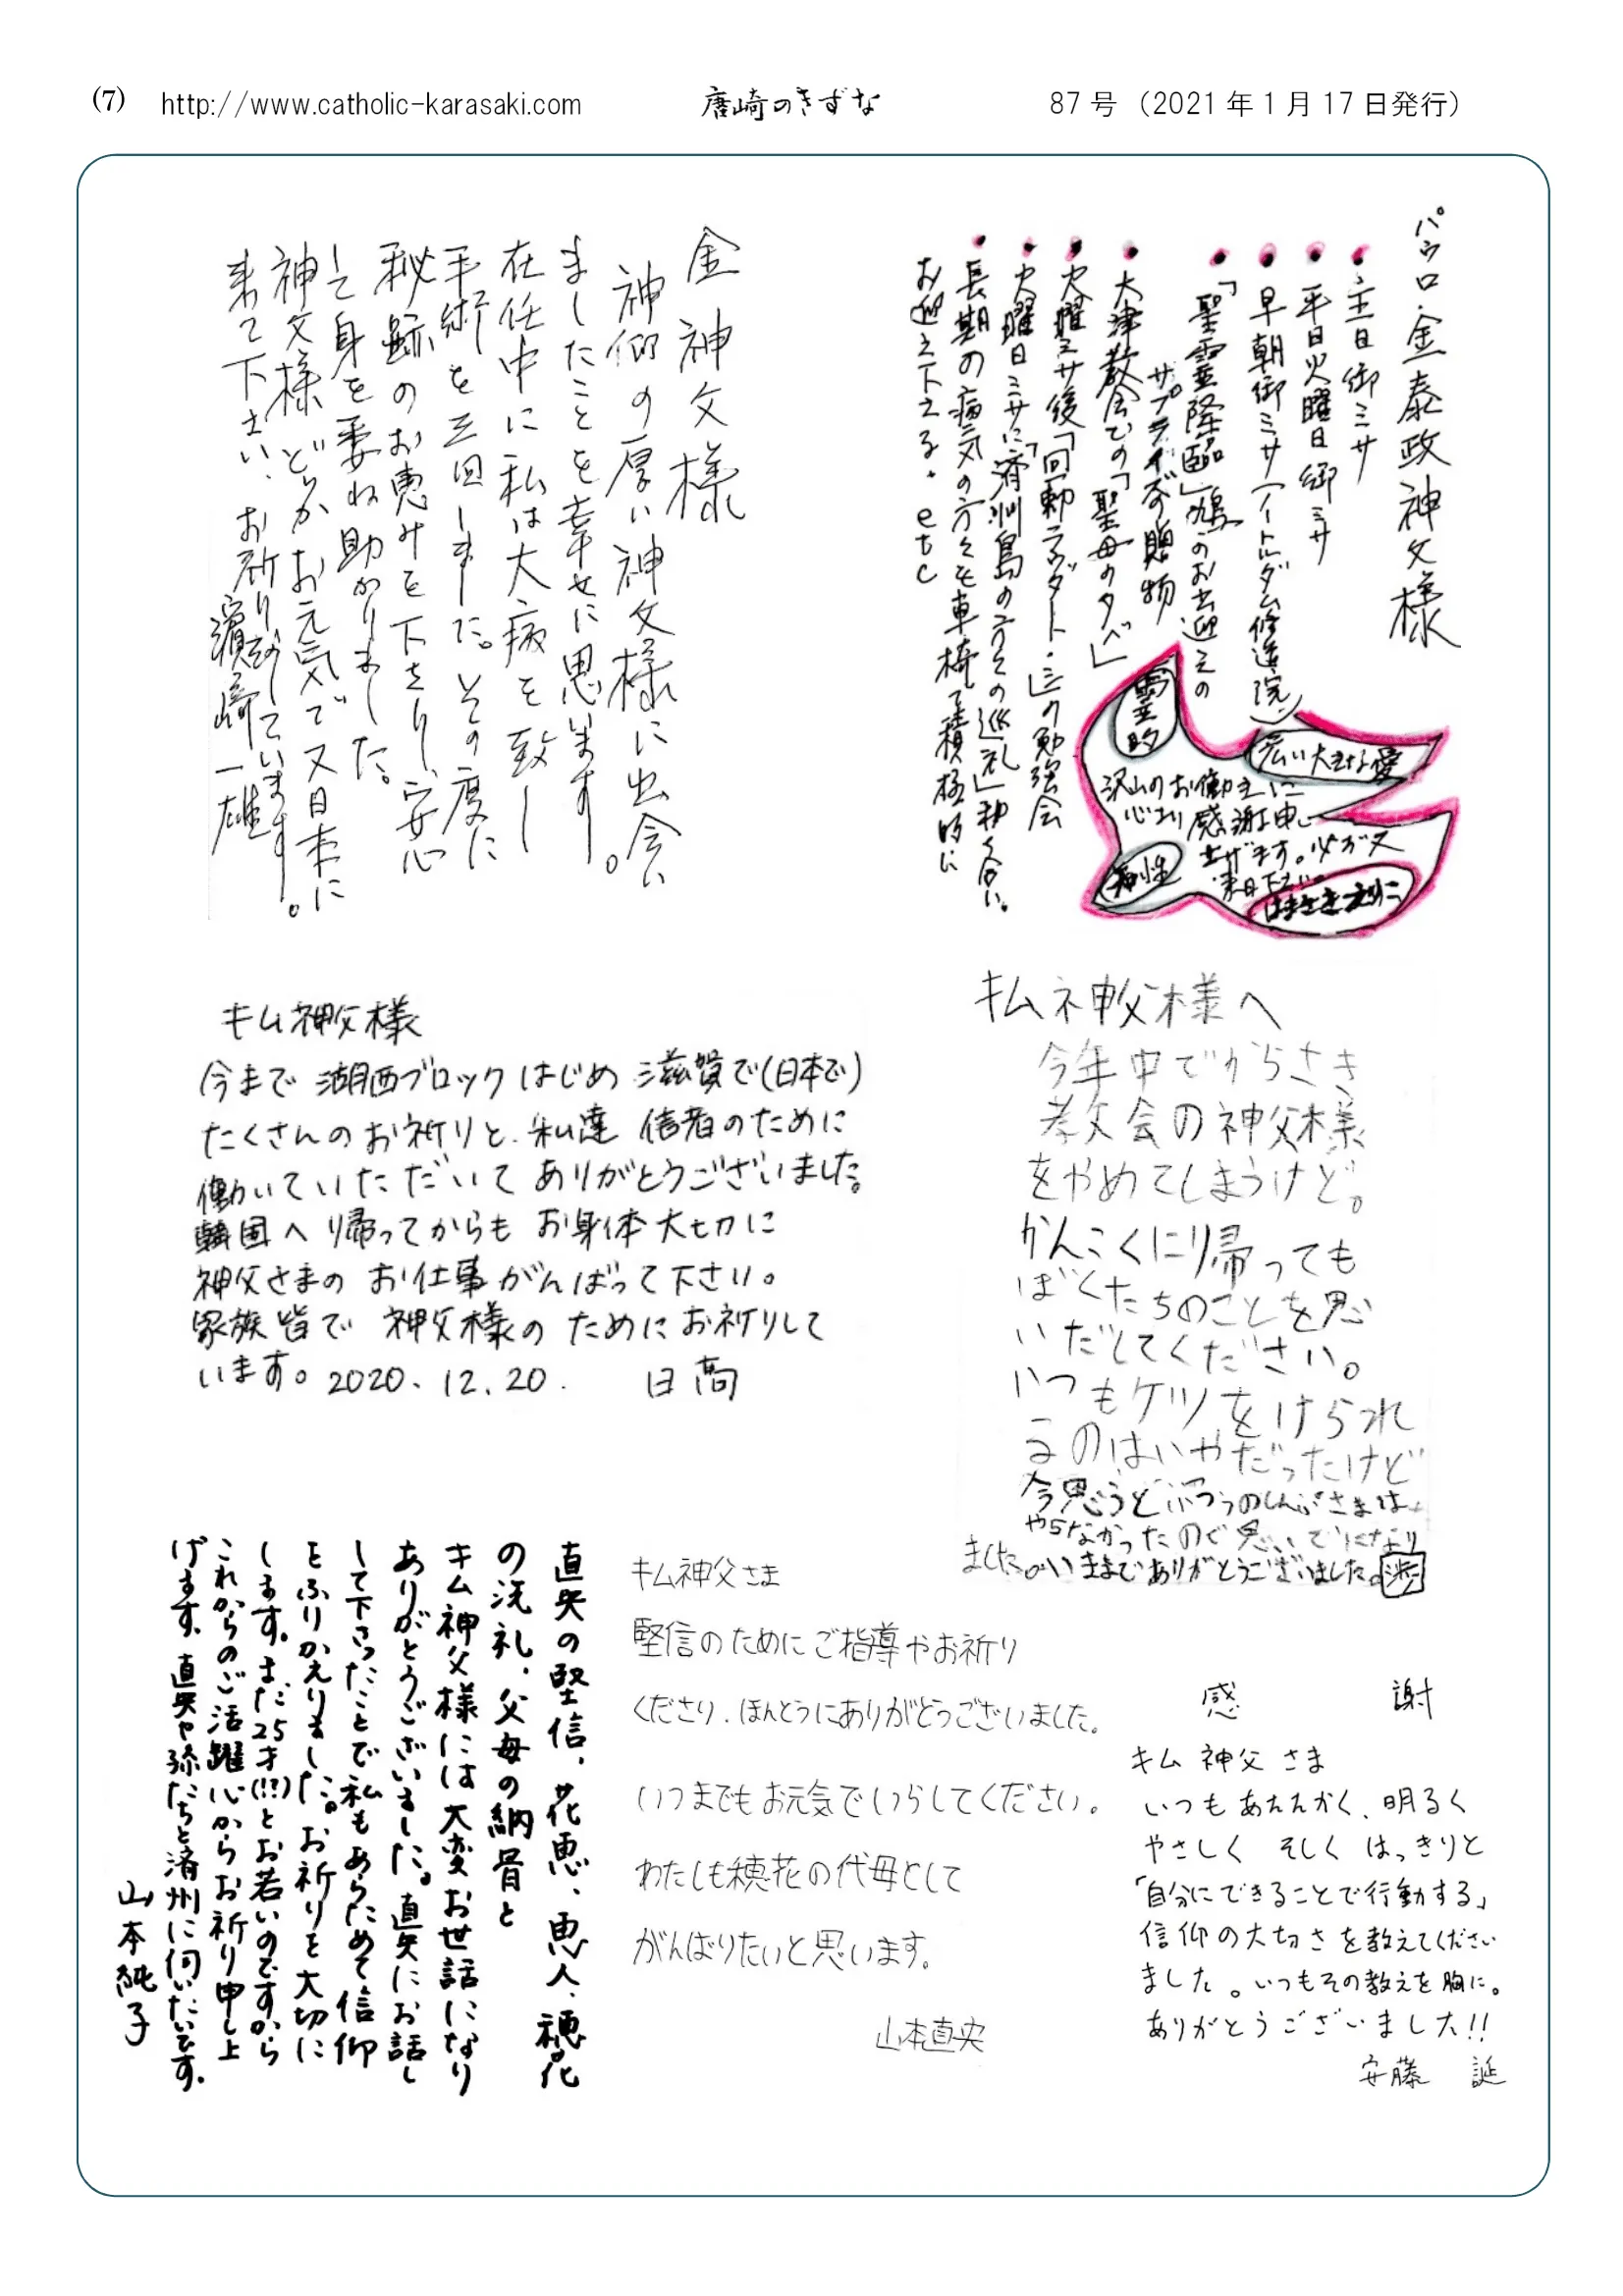 (7) http://www.catholic-karasaki.com 唐崎のきずな 87号（2021年1月17日発行）
パウロ・金泰政神父様
・主日御ミサ
・平日火曜日御ミサ
・早朝御ミサ（ノートルダム修道院）
・「聖霊降臨」鳩のお出迎えの
サプライズの贈物
・大津教会での「聖母の夕べ」
・火曜ミサ後「回勅ラウダート・シ」の勉強会
・火曜日ミサに「済州島の方々の巡礼」和合い。
・長期の病気の方々を車椅子で積極的に
お迎え下さる。etc
霊的
広い大きな愛
沢山のお働きに
心より感謝申し
上げます。必ず又
来日下さい。
知性
はまさきえりこ
金神父様
神仰の厚い神父様に出会い
ましたことを幸せに思います。
在任中に私は大病を致し
手術を三回しました。その度に
秘跡のお恵みを下さり、安心
して身を委ね助かりました。
神父様どうかお元気で又日本に
来て下さい、お祈りしています。
濱崎一雄
キム神父様
今まで 湖西ブロック はじめ 滋賀で(日本で)
たくさんのお祈りと、私達 信者のために
働いていただいて ありがとうございました。
韓国へ帰ってからも お身体大切に
神父さまの お仕事がんばって下さい。
家族皆で 神父様の ためにお祈りして
います。2020.12.20. 日高
キム神父様へ
今年中でからさき
教会の神父様
をやめてしまうけど。
かんこくに帰っても
ぼくたちのことを思
いだしてください。
いつもケツをけられ
るのはいやだったけど
今思うとふつうのしんぷさまは
やらなかったので思いでになり
ました。いままでありがとうございました。
直矢の堅信、花恵、恵人、穂花
の洗礼、父母の納骨と
キム神父様には大変お世話になり
ありがとうございました。直矢にお話し
して下さったことで私もあらためて信仰
をふりかえりました。お祈りを大切に
します。まだ25才(!?)とお若いのですから
これからのご活躍心からお祈り申し上
げます。直矢や孫たちと済州に伺いたいです。
山本純子
キム神父さま
堅信のためにご指導やお祈り
くださり、ほんとうにありがとうございました。
いつまでもお元気でいらしてください。
わたしも穂花の代母として
がんばりたいと思います。
山本直央
感 謝
キム 神父 さま
いつも あたたかく、明るく
やさしく そしく はっきりと
「自分にできることで行動する」
信仰の大切さを教えてください
ました。いつもその教えを胸に。
ありがとうございました!!
安藤 誕